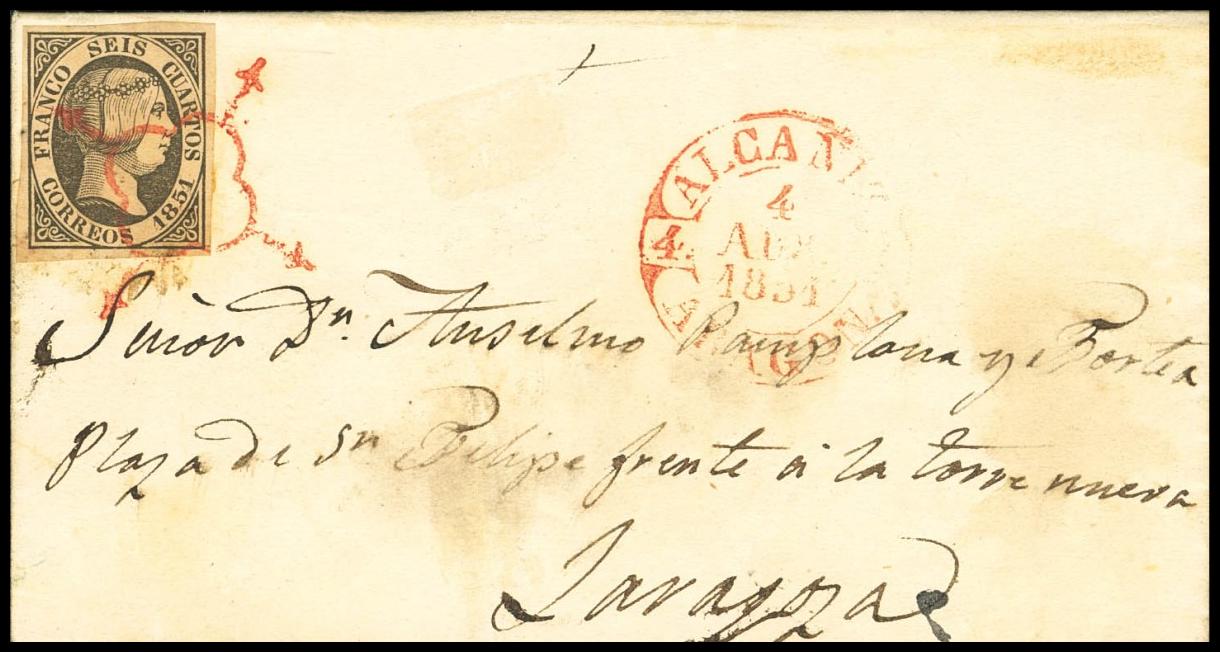 FRANCO SEIS CUARTOS
CORREOS 1851
ALCAÑI
4
4.
1851
Señor Dn. Anselmo Pamplona y Fortea
Plaza de Sn Felipe frente á la torre nueva
Zaragoza